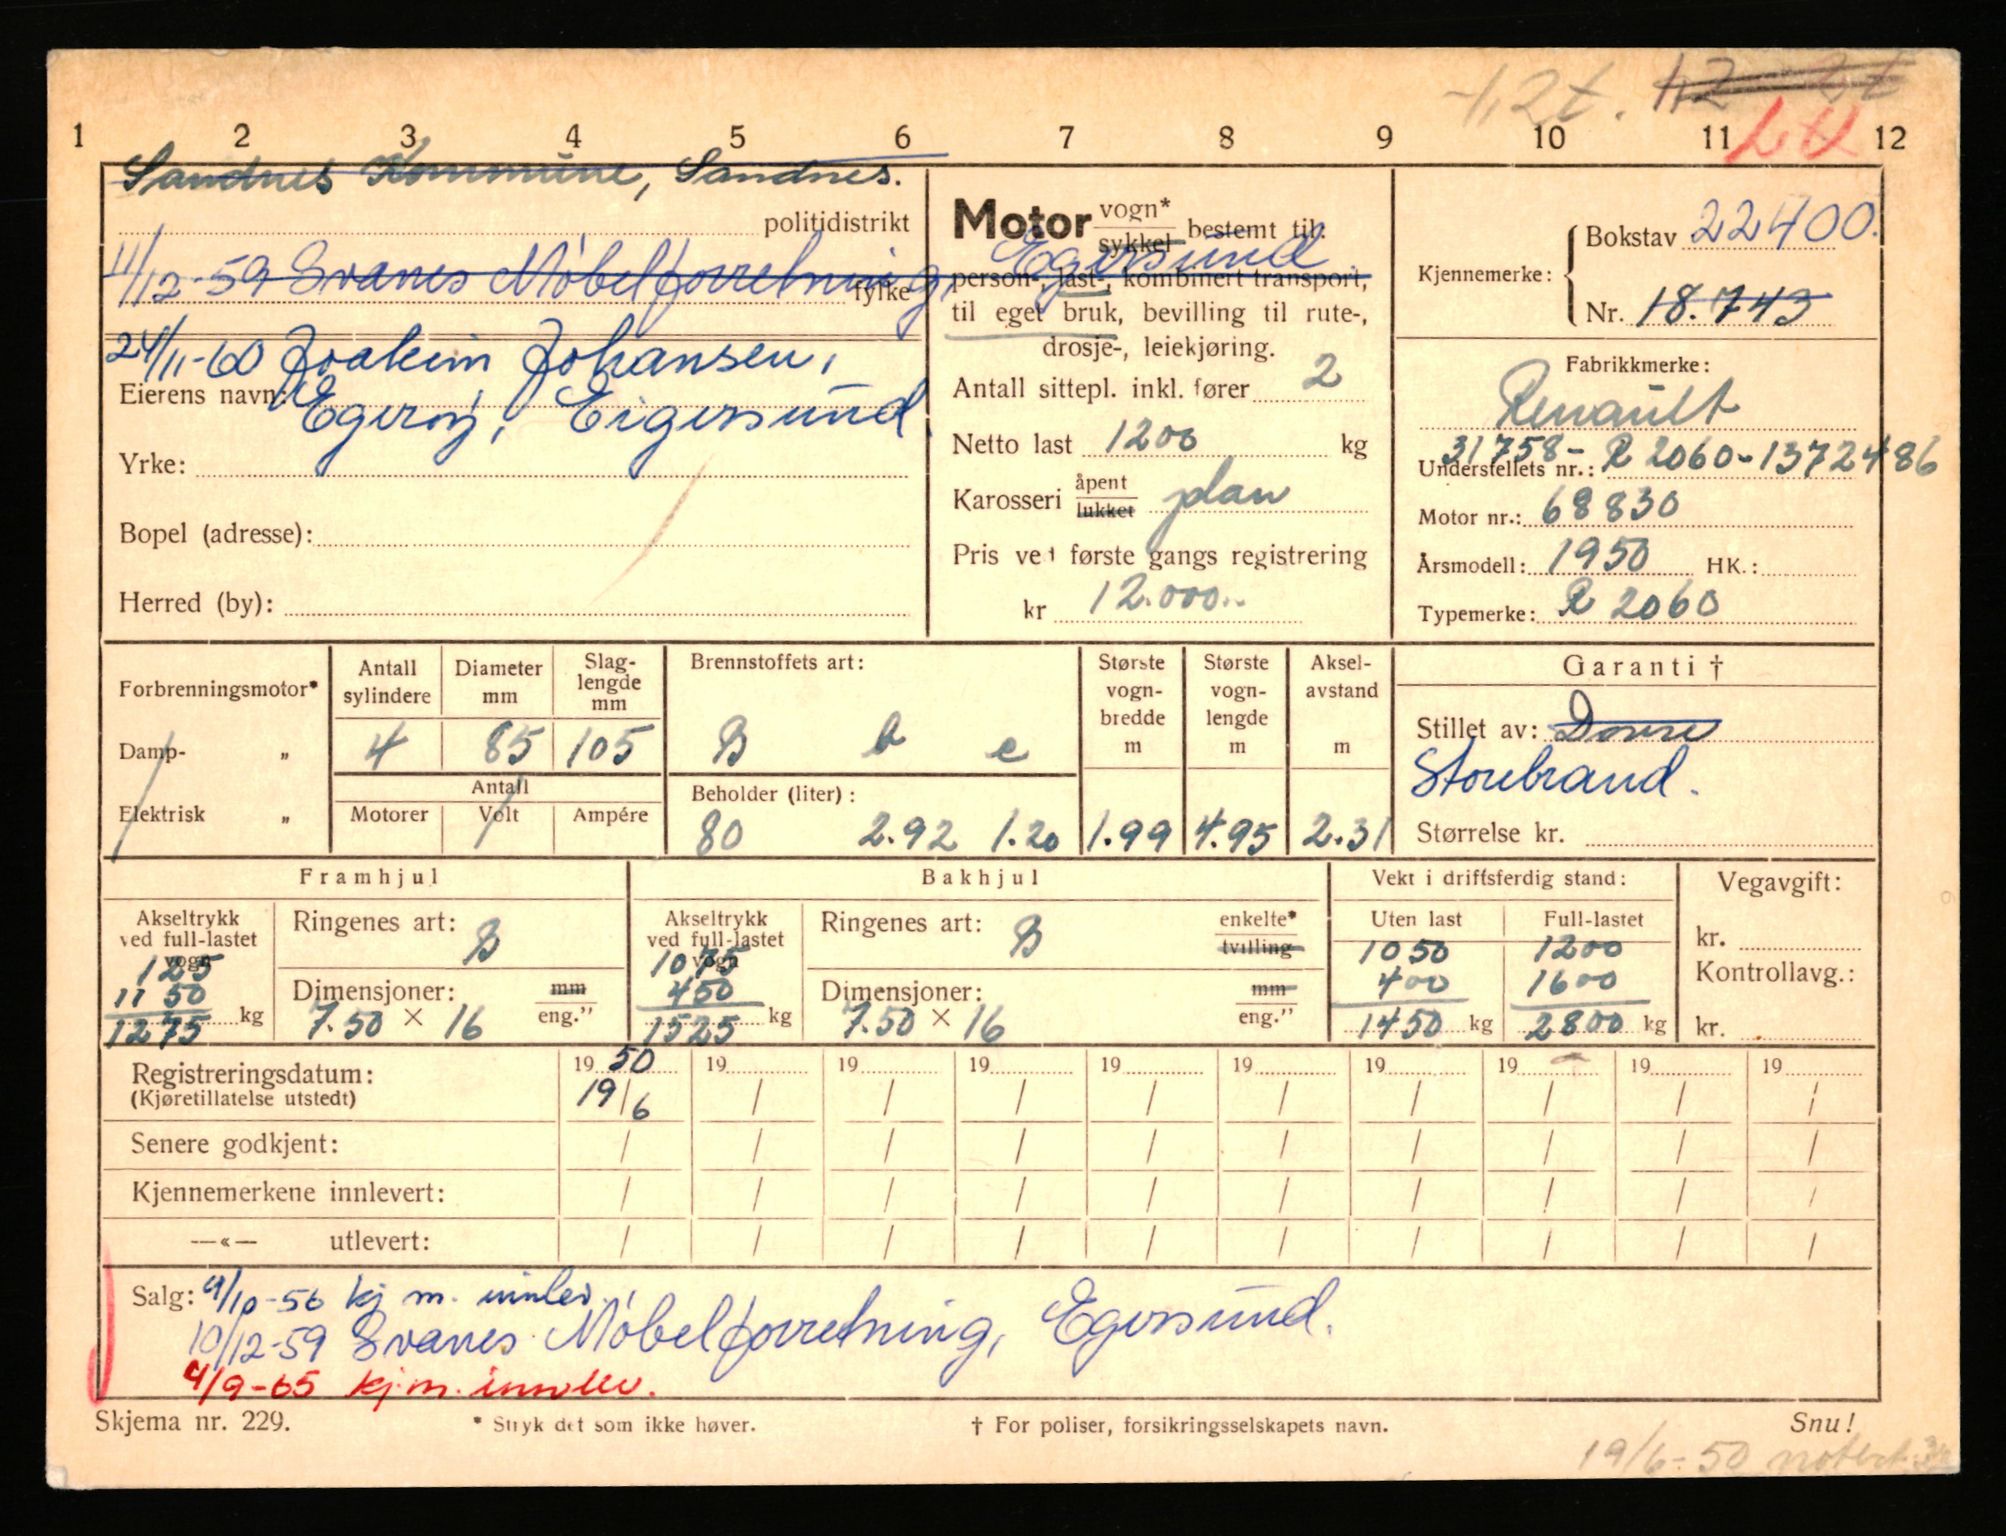 -1,2t. 1,2 2t
1 2 3 4 5 6 7 8 9 10 11 12
Sandnes Kommune, Sandnes.
politidistrikt
11/12-59 Svanes Møbelforretning, Egersund
fylke
24/11-60 Joakim Johansen,
Eierens navn: Egerøy, Eigersund
Yrke:
Bopel (adresse):
Herred (by):
Motor vogn* sykkel bestemt til:
person-, last-, kombinert transport,
til eget bruk, bevilling til rute-,
drosje-, leiekjøring.
Antall sittepl. inkl. fører 2
Netto last 1200 kg
Karosseri åpent lukket plan
Pris ved første gangs registrering
kr 12.000.-
Kjennemerke: Bokstav 22400.
Nr. 18.743
Fabrikkmerke:
Renault
31758- R 2060-1372486
Understellets nr.:
Motor nr.: 68830
Årsmodell: 1950 HK.:
Typemerke: R 2060
Forbrenningsmotor*
Damp- „
Elektrisk „
Antall sylindere Diameter mm Slaglengde mm
4 85 105
Antall
Motorer Volt Ampére
Brennstoffets art:
B b e
Beholder (liter):
80 2.92 1.20
Største vogn-bredde m Største vogn-lengde m Aksel-avstand m
1.99 4.95 2.31
Garanti †
Stillet av: Dovre
Storebrand.
Størrelse kr.
Framhjul
Akseltrykk ved full-lastet vogn
125
1150
1275 kg
Ringenes art: B
Dimensjoner: mm eng."
7.50 × 16
Bakhjul
Akseltrykk ved full-lastet vogn
1075
450
1525 kg
Ringenes art: B enkelte* tvilling
Dimensjoner: mm eng."
7.50 × 16
Vekt i driftsferdig stand:
Uten last Full-lastet
1050 1200
400 1600
1450 kg 2800 kg
Vegavgift:
kr.
Kontrollavg.:
kr.
Registreringsdatum: 19 50 19 19 19 19 19 19 19 19 19
(Kjøretillatelse utstedt) 19/6 / / / / / / / / /
Senere godkjent: / / / / / / / / / /
Kjennemerkene innlevert: / / / / / / / / / /
—«— utlevert: / / / / / / / / / /
Salg: 9/10-56 kj m. innlev.
10/12-59 Svanes Møbelforretning, Egersund.
4/9-65 kj.m. innlev.
Skjema nr. 229. * Stryk det som ikke høver. † For poliser, forsikringsselskapets navn. Snu!
19/6-50 notert